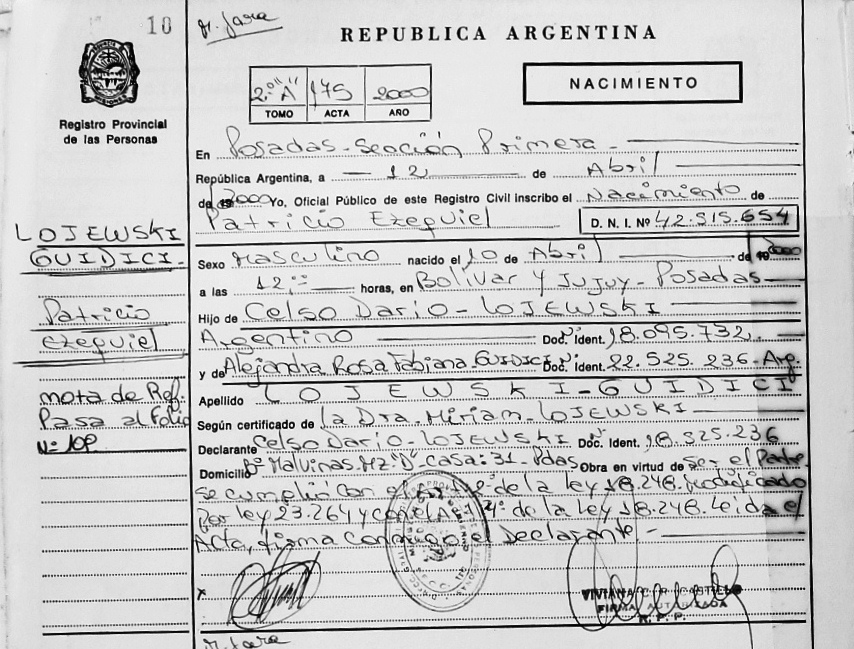 10
M. Jara
REPUBLICA ARGENTINA
2º "A" 175 2000
TOMO ACTA AÑO
NACIMIENTO
Registro Provincial
de las Personas
En Posadas - Sección Primera -
República Argentina, a 12 de Abril
de 2000 Yo, Oficial Público de este Registro Civil inscribo el Nacimiento de
Patricio Ezequiel D. N. I. Nº 42.515.654
LOJEWSKI
GUIDICI -
Patricio
Ezequiel
nota de Ref:
Pasa al Folio
Nº 10P
Sexo Masculino nacido el 10 de Abril de 2000
a las 12,00 horas, en Bolívar y Jujuy - Posadas
Hijo de Celso Dario - LOJEWSKI
Argentino Doc. Nº Ident. 18.095.732
y de Alejandra Rosa Fabiana GUIDICI Doc. Nº Ident. 22.525.236 - Arg.
Apellido LOJEWSKI - GUIDICI
Según certificado de la Dra. Miriam - LOJEWSKI
Declarante Celso Dario - LOJEWSKI Doc. Nº Ident. 18.325.236
Domicilio Bº Malvinas. Mz. "D" - casa: 31 - Pdas Obra en virtud de ser el Padre
se cumplió con el de la ley 18.248. modificado
por ley 23.264 y con el Art. 4º de la ley 18.248. Leída el
Acta, firma conmigo el Declarante -
x
FIRMA AUTORIZADA
R. P. P.
M. Jara